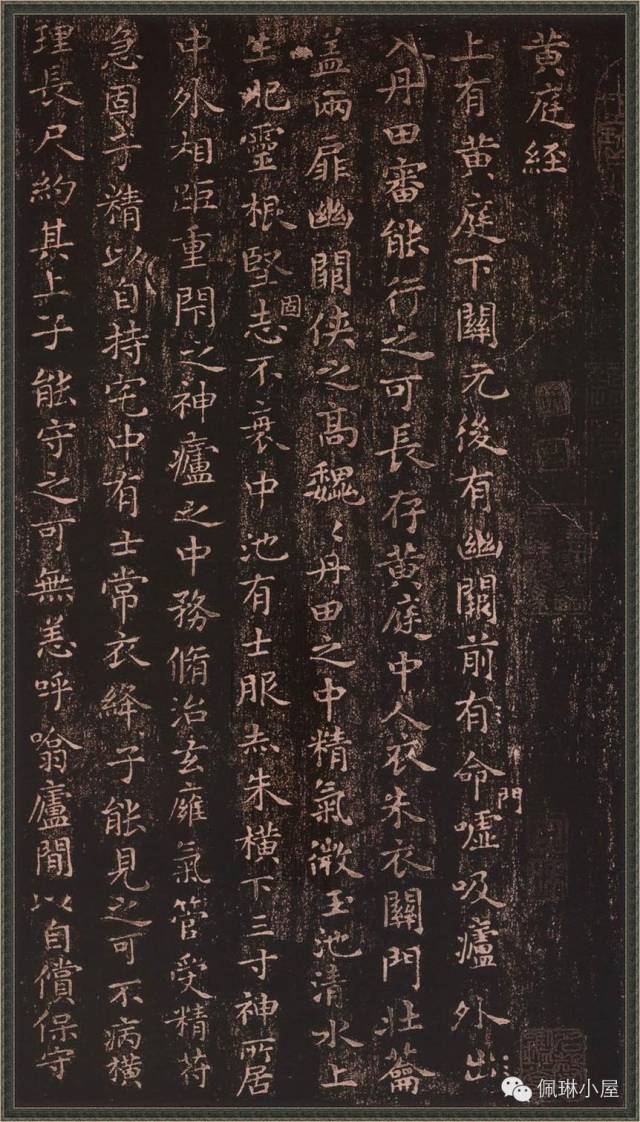 黄庭經
上有黄庭下關元後有幽闕前有命門噓吸廬外出
入丹田審能行之可長存黄庭中人衣朱衣關門壯籥
盖兩扉幽關俠之高魏〻丹田之中精氣微玉池清水上
生肥靈根堅固志不衰中池有士服赤朱横下三寸神所居
中外相距重閇之神廬之中務脩治玄癰氣管受精苻
急固子精以自持宅中有士常衣絳子能見之可不病横
理長尺約其上子能守之可無恙呼噏廬間以自償保守
佩琳小屋